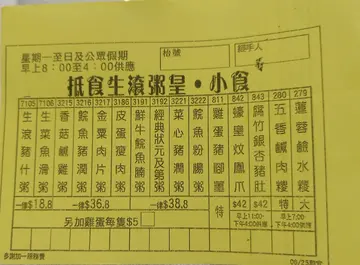 星期一至日及公眾假期
早上8:00至4:00供應
枱號
經手人
抵食生滾粥皇·小食
7105 生滾豬什粥
3205 生菜魚滑粥
3215 香菇鹹雞粥
3216 鯪魚豬潤粥
3217 金粟肉片粥
3186 皮蛋瘦肉粥
3191 鮮牛鯪魚腩粥
3192 經典狀元及第粥
3222 菜心豬潤粥
3221 鯪魚粉腸粥
811 雞蛋豬腳薑
842 蠔皇炆鳳爪
843 腐竹銀杏豬肚
280 五香鹹肉糭
279 蓮蓉鹼水糭
一律$18.8
一律$36.8
一律$38.8
特
$42
$42
特
大
另加雞蛋每隻$5
早上11:00-下午4:00供應
早上7:00-下午4:00供應
多謝加一服務費